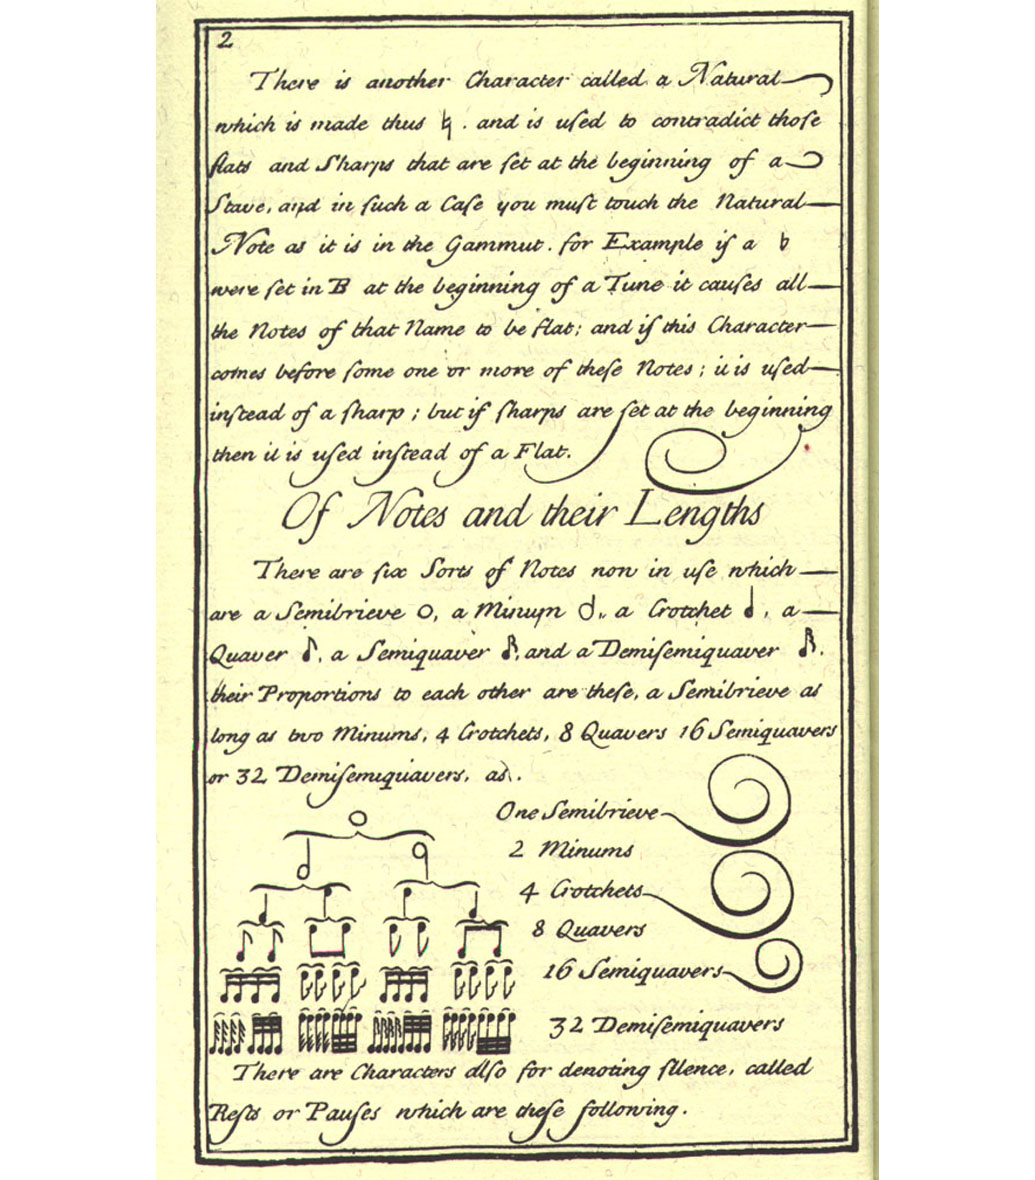 2
There is another Character called a Natural
which is made thus ♮. and is uſed to contradict thoſe
flats and Sharps that are ſet at the beginning of a
Stave, and in ſuch a Caſe you muſt touch the Natural
Note as it is in the Gammut. for Example if a ♭
were ſet in B at the beginning of a Tune it cauſes all
the Notes of that Name to be flat; and if this Character
comes before ſome one or more of theſe Notes; it is uſed
inſtead of a ſharp; but if ſharps are ſet at the beginning
then it is uſed inſtead of a Flat.
Of Notes and their Lengths
There are ſix Sorts of Notes now in uſe which
are a Semibrieve 𝅝, a Minum 𝅗𝅥, a Crotchet 𝅘𝅥, a
Quaver 𝅘𝅥𝅮, a Semiquaver 𝅘𝅥𝅯, and a Demiſemiquaver 𝅘𝅥𝅰.
their Proportions to each other are theſe, a Semibrieve as
long as two Minums, 4 Crotchets, 8 Quavers 16 Semiquavers
or 32 Demiſemiquavers, as.
One Semibrieve
2 Minums
4 Crotchets
8 Quavers
16 Semiquavers
32 Demiſemiquavers
There are Characters alſo for denoting ſilence, called
Reſts or Pauſes which are theſe following.